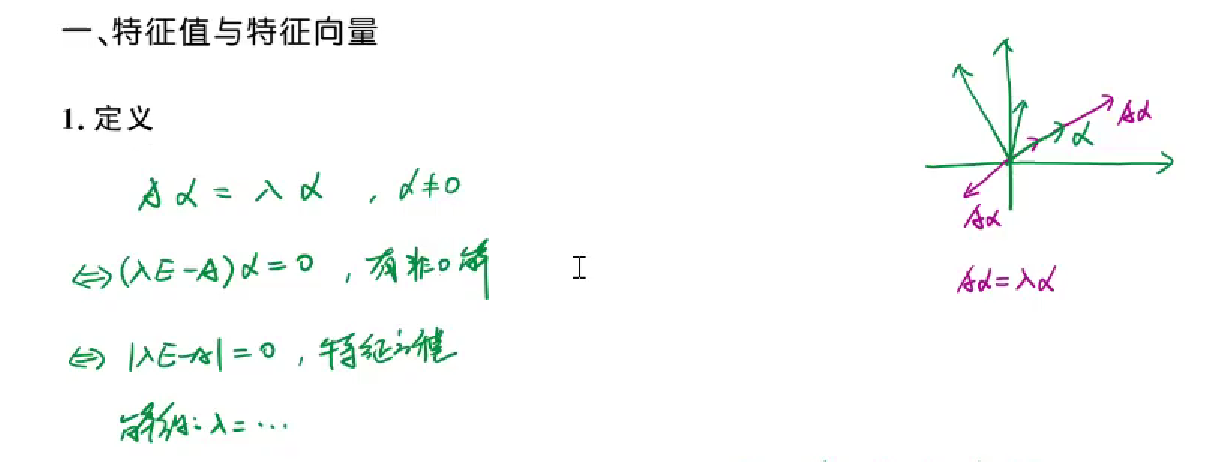 一、特征值与特征向量
1. 定义
Aα = λα , α≠0
⇔(λE-A)α=0 , 有非0解
⇔ |λE-A|=0 , 特征方程
解得: λ=…
Aα
α
Aα
Aα=λα